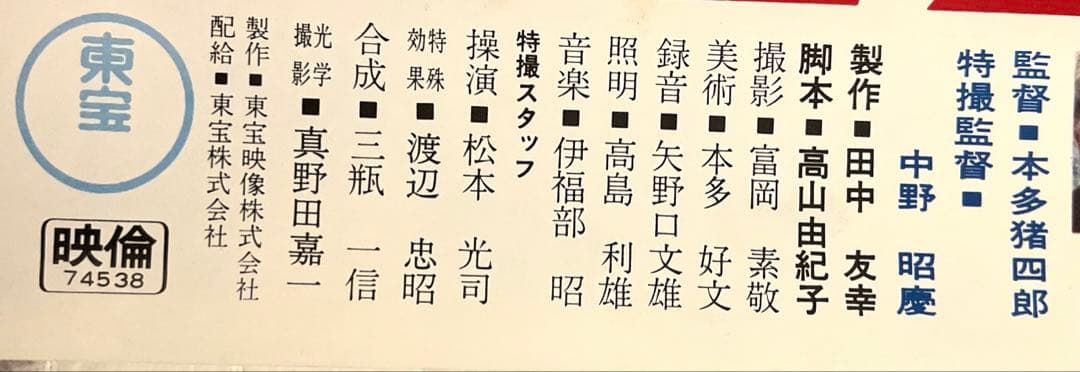 監督■本多猪四郎
特撮監督■
中野 昭慶
製作■田中 友幸
脚本■高山由紀子
撮影■富岡 素敬
美術■本多 好文
録音■矢野口文雄
照明■高島 利雄
音楽■伊福部 昭
特撮スタッフ
操演■松本 光司
特殊効果■渡辺 忠昭
合成■三瓶 一信
光学撮影■真野田嘉一
製作■東宝映像株式会社
配給■東宝株式会社
東宝
映倫
74538